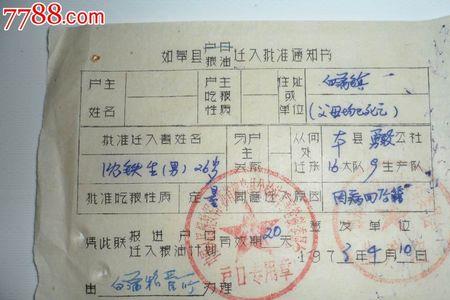 7788.com
如皋县 户口 粮油 迁入批准通知书
户主姓名 户主吃粮性质 住址或单位 白蒲镇
(父母均已死亡)
批准迁入者姓名 与户主关系 从何处迁来 本县勇敢公社
铁生(男)26岁 16大队9生产队
批准吃粮性质 定量 同意迁入原因 因病回
凭此联报进户口 迁入粮油计划 有效期20天 签发单位
户口专用章
1973年4月10日
由 白蒲粮管所 办理